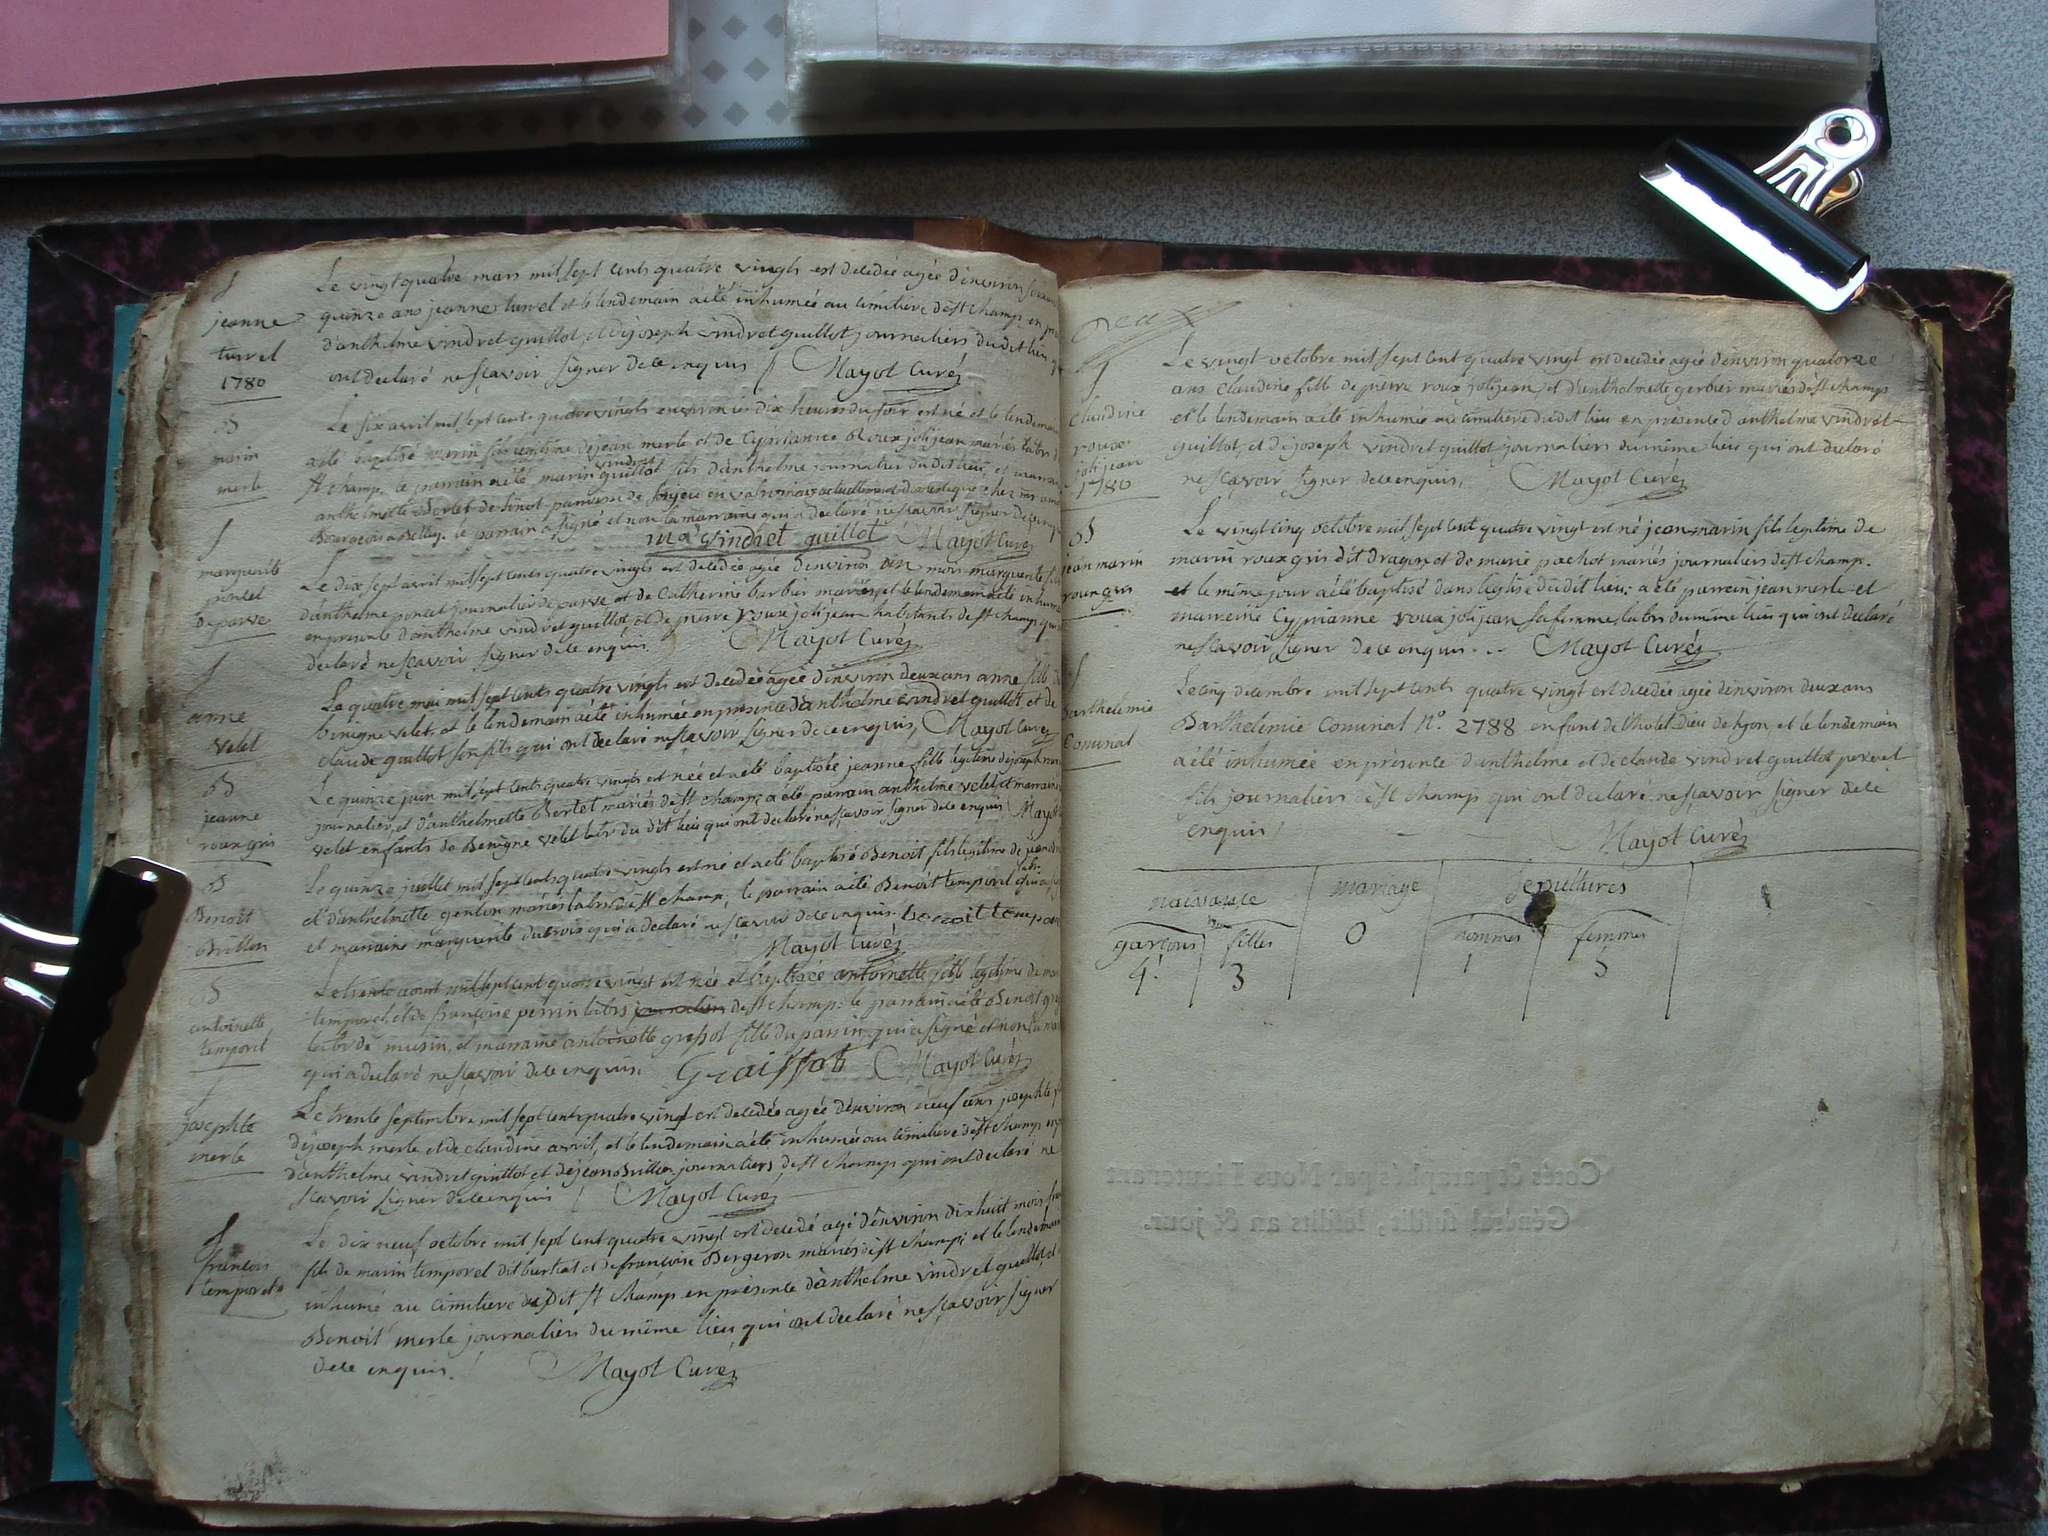 S
jeanne
turrel
1780
Le vingt quatre mars mil sept cents quatre vingts est decedée agée d'environ soixante
quinze ans jeanne turrel et le lendemain a été inhumée au cimitiere de st champ en
d'anthelme vindret guillot, et de joseph vindret guillot journaliers du dit lieu
ont declaré ne sçavoir signer de ce enquis / Mayol Curé
B
marin
merle
Le six avril mil sept cents quatre vingts environ les dix heures du soir est né et le lendemain
a été baptisé marin fils legitime de jean merle et de Cyprianne Roux joli jean mariés labrs de
st champ. le parrain a été marin vindret guillot fils d'anthelme journalier du dit lieu, et marraine
anthelmette Berlet de paroisse de en valromay actuellement domestique chez mr
Bourgeois a Belley. le parrain a signé et non la marraine qui a declaré ne sçavoir signer de ce enquis
mn vindret guillot Mayol Curé
S
marguerite
poncet
de parve
Le dix sept avril mil sept cents quatre vingts est decedée agée d'environ un mois marguerite fille
d'anthelme poncet journalier de parve et de Catherine barbier mariés, et le lendemain a été inhumée
en presence d'anthelme vindret guillot, et de pierre roux joli jean habitants de st champ qui ont
declaré ne sçavoir signer de ce enquis Mayol Curé
S
anne
velet
Le quatre mai mil sept cents quatre vingts est decedée agée d'environ deux ans anne fille de
benigne velet, et le lendemain a été inhumée en presence d'anthelme vindret guillot et de
claude guillot son fils qui ont declaré ne sçavoir signer de ce enquis, Mayol Curé
B
jeanne
roux gris
Le quinze juin mil sept cents quatre vingts est née et a été baptisée jeanne fille légitime de joseph roux
journalier, et d'anthelmette Bertet mariés de st champ. a été parrain anthelme velet et marraine
velet enfants de Benigne velet labr du dit lieu qui ont declaré ne sçavoir signer de ce enquis Mayol
B
Benoit
Brillon
Le quinze juillet mil sept cents quatre vingts est né et a été baptisé Benoit fils legitime de jean
et d'anthelmette gention mariés labrs de st champ, le parrain a été Benoit temporel qui a
et marraine marguerite dubois qui a declaré ne sçavoir de ce enquis. benoit temporel
Mayol Curé
B
antoinette
temporel
Le trente aout mil sept cent quatre vingt est née et baptisée antoinette fille legitime de
temporel, et de françoise perrin labrs journalier de st champ: le parrain a été Benoit
labr de musin, et marraine antoinette graissot fille du parrin, qui a signé et non la marraine
qui a declaré ne sçavoir de ce enquis. Graissot Mayol Curé
S
josephte
merle
Le trente septembre mil sept cents quatre vingt est decedée agée d'environ neuf ans josephte fille
de joseph merle et de claudine arvil, et le lendemain a été inhumée au cimitiere de st champ en
d'anthelme vindret guillot et de jean Brillon journaliers de st champ qui ont declaré ne
sçavoir signer de ce enquis / Mayol Curé
S
françois
temporel
Le dix neuf octobre mil sept cent quatre vingt est decedé agé d'environ dix huit mois françois
fils de marin temporel dit burtat et de françoise Bergeron mariés de st champ; et le lendemain
inhumé au cimitiere du dit st champ en présence d'anthelme vindret guillot, et
Benoit merle journaliers du même lieu qui ont declaré ne sçavoir signer
de ce enquis / Mayol Curé
S
Claudine
roux
joli jean
1780
Le vingt octobre mil sept cent quatre vingt est decedée agée d'environ quatorze
ans Claudine fille de pierre roux joli jean, et d'anthelmette gerbier mariés de st champ
et le lendemain a été inhumée au cimitiere du dit lieu en présence d'anthelme vindret
guillot, et de joseph vindret guillot journaliers du même lieu qui ont declaré
ne sçavoir signer de ce enquis, Mayol Curé
B
jean marin
roux gris
Le vingt cinq octobre mil sept cent quatre vingt est né jean marin fils legitime de
marin roux gris dit dragon, et de marie pochot mariés journaliers de st champ.
et le même jour a été baptisé dans l'eglise du dit lieu; a été parrein jean merle et
marreine Cyprianne roux joli jean sa femme labrs du même lieu qui ont declaré
ne sçavoir signer de ce enquis. .. Mayol Curé
S
Barthelemie
Comunal
Le cinq decembre mil sept cents quatre vingt est decedée agée d'environ deux ans
Barthelemie Comunal N° 2788 enfant de l'hotel-Dieu de lyon, et le lendemain
a été inhumée en présence d'anthelme et de claude vindret guillot pere et
fils journaliers de st champ qui ont declaré ne sçavoir signer de ce
enquis / Mayol Curé
naissance mariage sepultures
garçons filles 0 hommes femmes
4 3 1 5
Cotés & paraphés par Nous Lieutenant
Général susdit, lesdits an & jour.